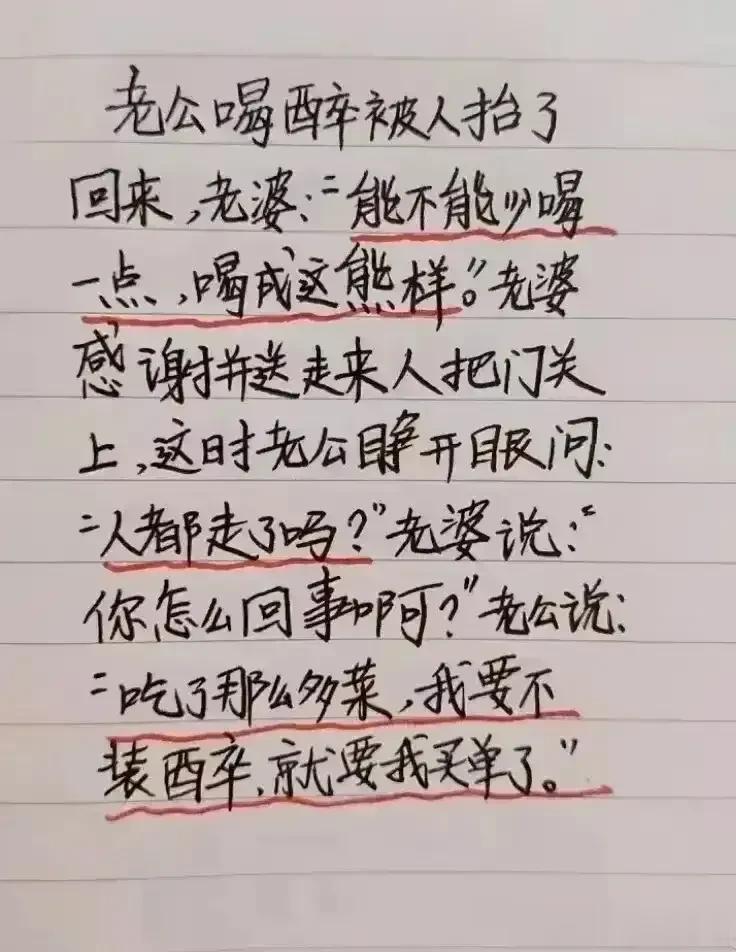 老公喝醉被人抬了
回来,老婆:“能不能少喝
一点,喝成这熊样。”老婆
感谢并送走来人把门关
上,这时老公睁开眼问:
“人都走了吗?”老婆说:“
你怎么回事啊?”老公说:
“吃了那么多菜,我要不
装醉,就要我买单了。”